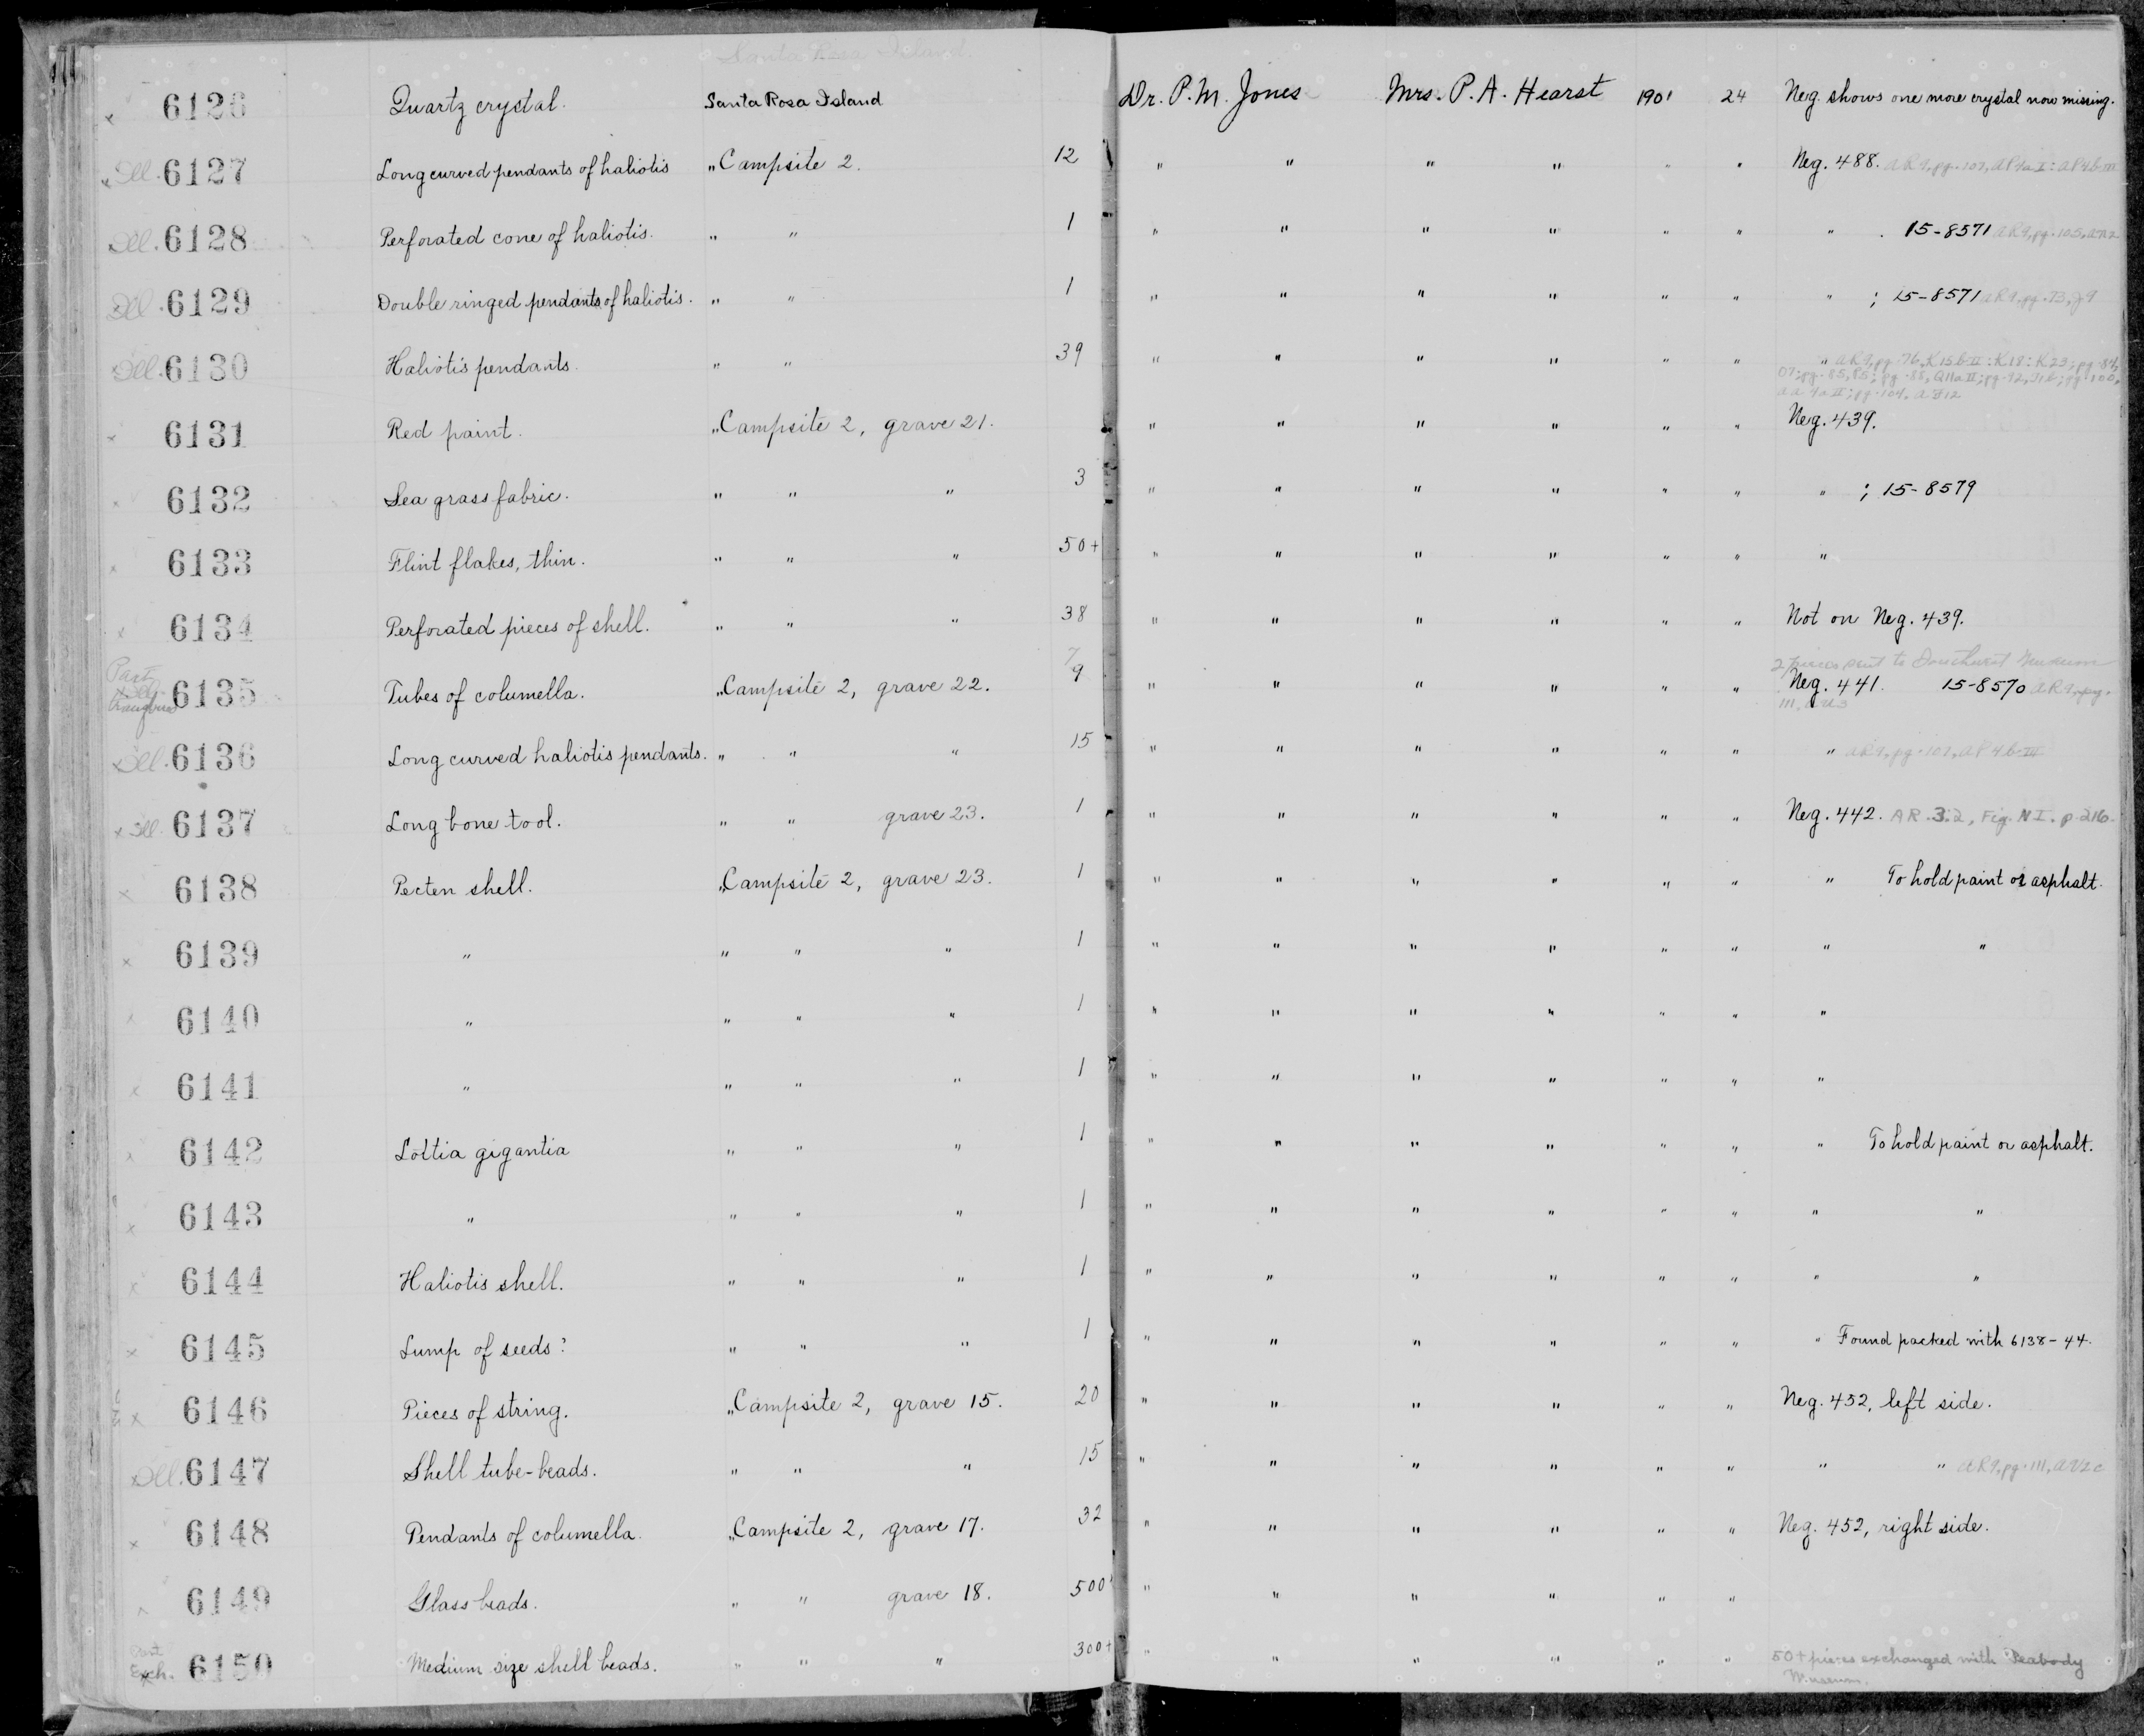 Santa Rosa Island.
6126 Quartz crystal. Santa Rosa Island Dr. P. M. Jones Mrs. P. A. Hearst 1901 24 Neg. shows one more crystal now missing.
Ill. 6127 Long curved pendants of haliotis " Campsite 2. 12 " " " " " " Neg. 488. AR 9, pg. 107, AP4a I: AP4b III
Ill. 6128 Perforated cone of haliotis. " " 1 " " " " " " " 15-8571 AR 9, pg. 105,
Ill. 6129 Double ringed pendants of haliotis. " " 1 " " " " " " " ; 15-8571 AR 9, pg. 73, J9
Ill. 6130 Haliotis pendants. " " 39 " " " " " " " AR 9, pg. 76, K15b II: K18: K23; pg. 84,
O7; pg. 85, P5; pg. 88, Q11a II; pg. 92, ; pg. 100,
AA 4a II; pg. 104,
6131 Red paint. " Campsite 2, grave 21. " " " " " " Neg. 439.
6132 Sea grass fabric. " " " 3 " " " " " " " ; 15-8579
6133 Flint flakes, thin. " " " 50+ " " " " " " "
6134 Perforated pieces of shell. " " " 38 " " " " " " Not on Neg. 439.
Part 7 2 pieces sent to Museum
Ill. 6135 Tubes of columella. " Campsite 2, grave 22. 9 " " " " " " Neg. 441. 15-8570 AR 9, pg.
111,
Ill. 6136 Long curved haliotis pendants. " " " 15 " " " " " " " AR 9, pg. 107, AP4b III
x Ill. 6137 Long bone tool. " " grave 23. 1 " " " " " " Neg. 442. AR. 3:2, Fig. NI. p. 216.
x 6138 Pecten shell. " Campsite 2, grave 23. 1 " " " " " " " To hold paint or asphalt.
x 6139 " " " " 1 " " " " " " " "
x 6140 " " " " 1 " " " " " " "
x 6141 " " " " 1 " " " " " " "
x 6142 Lottia gigantia " " " 1 " " " " " " " To hold paint or asphalt.
x 6143 " " " " 1 " " " " " " " "
x 6144 Haliotis shell. " " " 1 " " " " " " " "
x 6145 Lump of seeds? " " " 1 " " " " " " " Found packed with 6138-44.
x 6146 Pieces of string. " Campsite 2, grave 15. 20 " " " " " " Neg. 452, left side.
Ill. 6147 Shell tube-beads. " " " 15 " " " " " " " " AR 9, pg. 111, AV2c
x 6148 Pendants of columella. " Campsite 2, grave 17. 32 " " " " " " Neg. 452, right side.
6149 Glass beads. " " grave 18. 500+ " " " " " "
Part
Exch. 6150 Medium size shell beads. " " " 300+ " " " " " " 50+ pieces exchanged with Peabody
Museum.